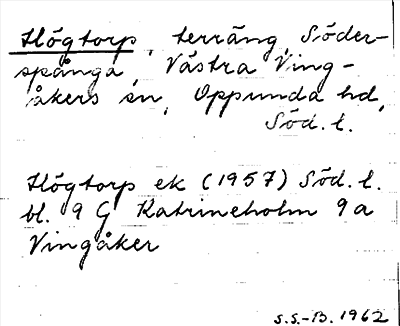 Högtorp, terräng, Söder-
spånga, Västra Ving-
åkers sn, Oppunda hd,
Söd. l.
Högtorp ek (1957) Söd. l.
bl. 9 G Katrineholm 9a
Vingåker
S.S.-B. 1962